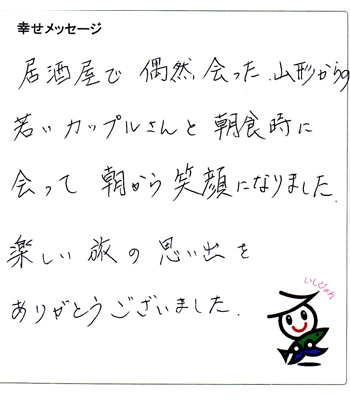 幸せメッセージ
居酒屋で 偶然 会った、山形からの
若いカップルさんと 朝食時に
会って 朝から 笑顔になりました。
楽しい 旅の 思い出を
ありがとうございました。
いしぴょん